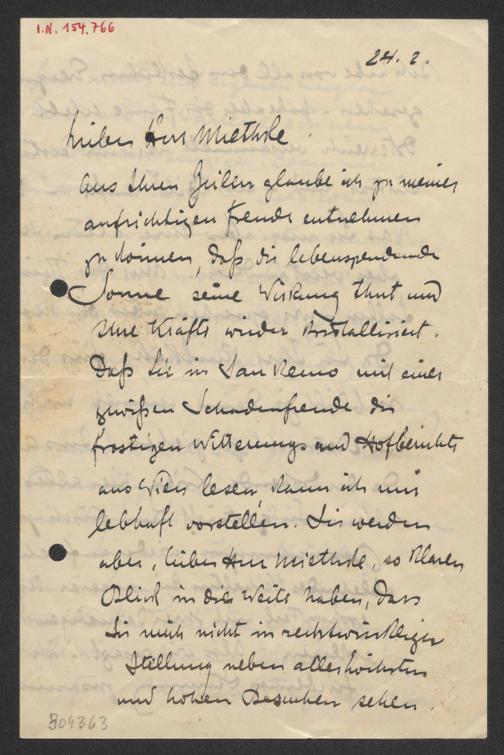 I.N. 154.766
24. 2.
Lieber Herr Miethke.
Aus Ihren Zeilen glaube ich zu meiner
aufrichtigen Freude entnehmen
zu können, daß die lebenspendende
Sonne seine Wirkung thut und
Ihre Kräfte wieder krystallisirt.
Daß Sie in San Remo mit einer
gewißen Schadenfreude die
frostigen Witterungs und Hofberichte
aus Wien lesen, kann ich mir
lebhaft vorstellen. Sie werden
aber, lieber Herr Miethke, so klaren
Blick in die Weite haben, dass
Sie mich nicht in rechtwinkliger
Stellung neben allerhöchsten
und hohen Besuchen sehen.
304363